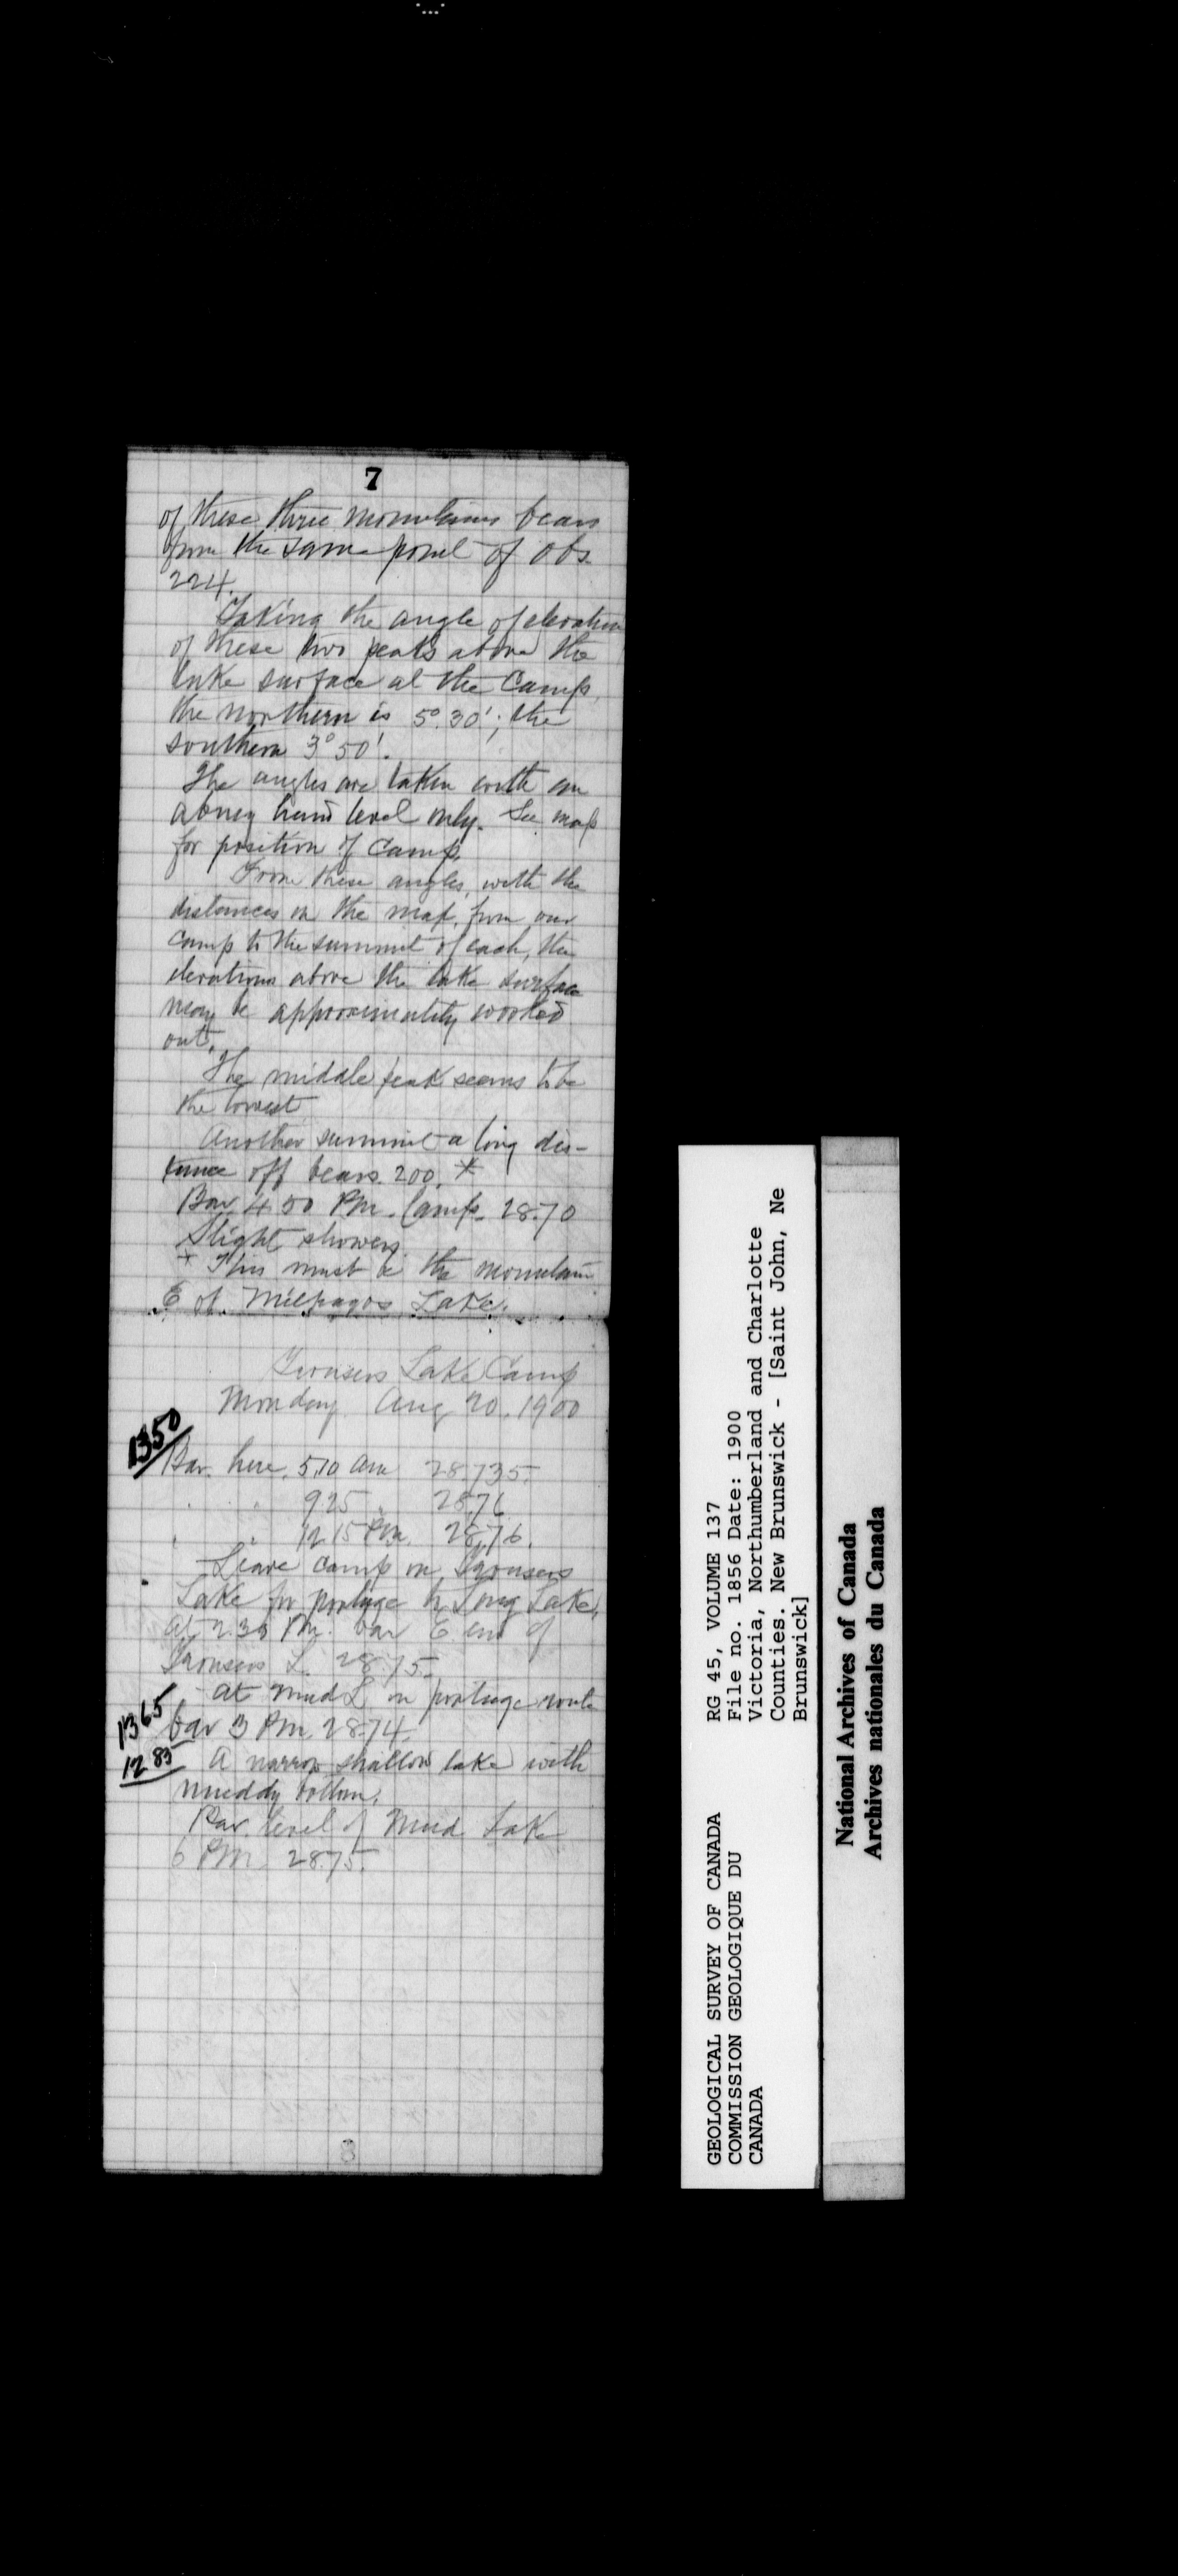 7
of these three mountains bears
from the same point of obs.
224.
Taking the angle of elevation
of these two peaks above the
lake surface at the Camp,
the northern is 5°.30'; the
southern 3°50'.
The angles are taken with an
abney hand level only. See map
for position of Camp.
From these angles, with the
distances on the map, from our
camp to the summit of each, the
elevations above the lake surface
may be approximately worked
out.
The middle peak seems to be
the lowest
Another summit a long dis-
tance off bears 200. *
Bar. 4.50 Pm. Camp. 28.70
Slight showers.
* This must be the mountain
E of Milpagos Lake.
Trousers Lake Camp
Monday Aug 20. 1900
1350
Bar. here. 5.10 am 28.735.
" " 9.25 " 28.76
" " 12.15 Pm. 28.76.
Leave camp on Trousers
Lake for portage to Long Lake,
at 2.30 Pm. bar E end of
Trousers L. 28.75.
At Mud L on portage route
1365
bar 3 Pm 28.74.
1283
A narrow shallow lake with
muddy bottom.
Bar. level of Mud Lake
6 Pm 28.75.
8
GEOLOGICAL SURVEY OF CANADA
COMMISSION GEOLOGIQUE DU
CANADA
RG 45, VOLUME 137
File no. 1856 Date: 1900
Victoria, Northumberland and Charlotte
Counties. New Brunswick - [Saint John, Ne
Brunswick]
National Archives of Canada
Archives nationales du Canada